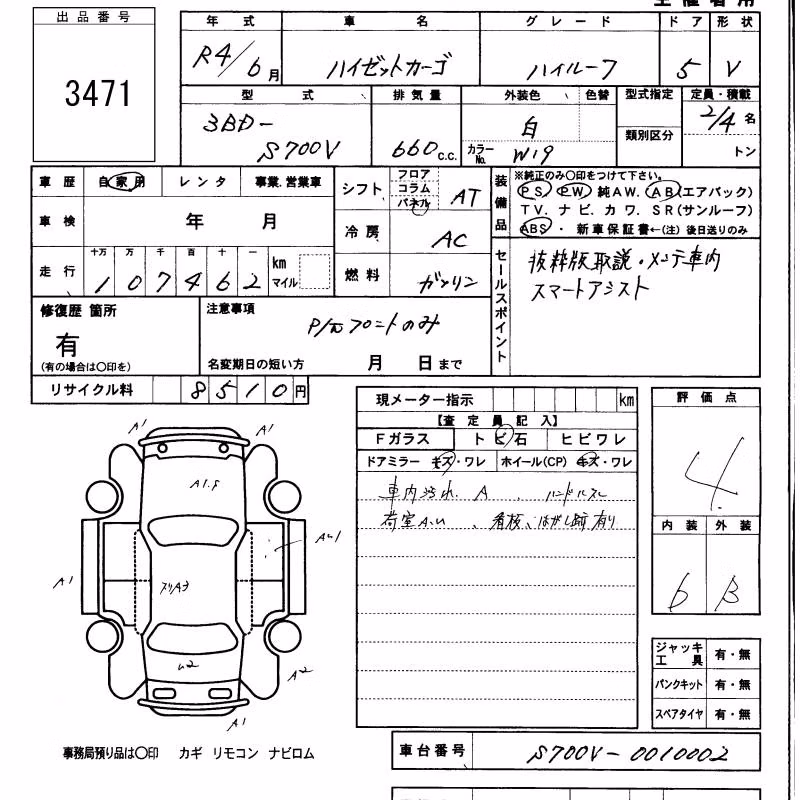 出品番号
3471
年式 車名 グレード ドア 形状
R4/6月 ハイゼットカーゴ ハイルーフ 5 V
型式 排気量 外装色 色替 型式指定 定員・積載
3BD-
S700V 660c.c. 白 類別区分 2/4名
カラーNo. W19 トン
車歴 自家用 レンタ 事業.営業車
シフト フロア コラム パネル AT
装備品 ※純正のみ〇印をつけて下さい。
PS PW 純AW. AB(エアバック)
TV. ナビ. カワ. SR(サンルーフ)
ABS ・ 新車保証書←(注)後日送りのみ
車検 年 月
冷房 AC
走行 十万 万 千 百 十 一
107462 km マイル
燃料 ガソリン
セールスポイント
抜粋版取説・メンテ車内
スマートアシスト
修復歴 箇所
有
(有の場合は〇印を)
注意事項
P/wフロントのみ
名変期日の短い方 月 日まで
リサイクル料 8510円
現メーター指示 km
【査定員記入】
Fガラス トビ石 ヒビワレ
ドアミラー キズ・ワレ ホイール(CP) キズ・ワレ
車内汚れ. A . ハンドルスレ
荷室A.U 、看板、はがし跡有り
評価点
4
内装 外装
b B
A1 A1
A1.5
AU1
A1
スリA3
U2
A2
A1
ジャッキ工具 有・無
パンクキット 有・無
スペアタイヤ 有・無
事務局預り品は〇印 カギ リモコン ナビロム
車台番号 S700V-0010002